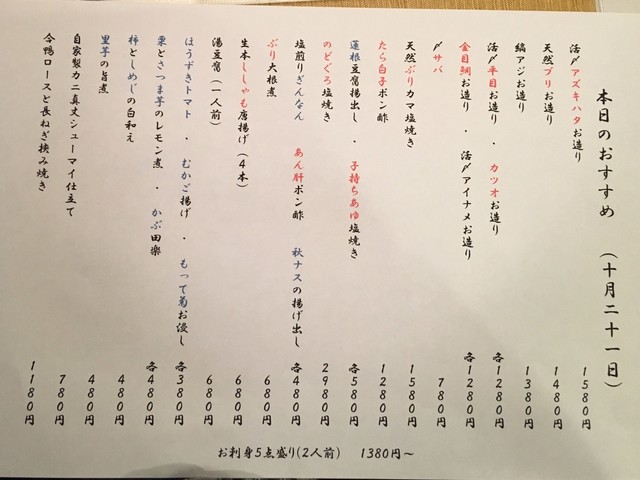 本日のおすすめ （十月二十一日）
活〆アズキハタお造り 1580円
天然ブリお造り 1480円
縞アジお造り 1380円
活〆平目お造り ・ カツオお造り 各1280円
金目鯛お造り ・ 活〆アイナメお造り 各1280円
〆サバ 780円
天然ぶりカマ塩焼き 1580円
たら白子ポン酢 1280円
蓮根豆腐揚出し ・ 子持ちあゆ塩焼き 各580円
のどぐろ塩焼き 2980円
塩煎りぎんなん あん肝ポン酢 秋ナスの揚げ出し 各480円
ぶり大根煮 680円
生本ししゃも唐揚げ（4本） 680円
湯豆腐（一人前） 680円
ほうずきトマト ・ むかご揚げ ・ もって菊お浸し 各380円
栗とさつま芋のレモン煮 ・ かぶ田楽 各480円
柿としめじの白和え 480円
里芋の旨煮 480円
自家製カニ真丈シューマイ仕立て 780円
合鴨ロースと長ねぎ挟み焼き 1180円
お刺身5点盛り(2人前) 1380円～